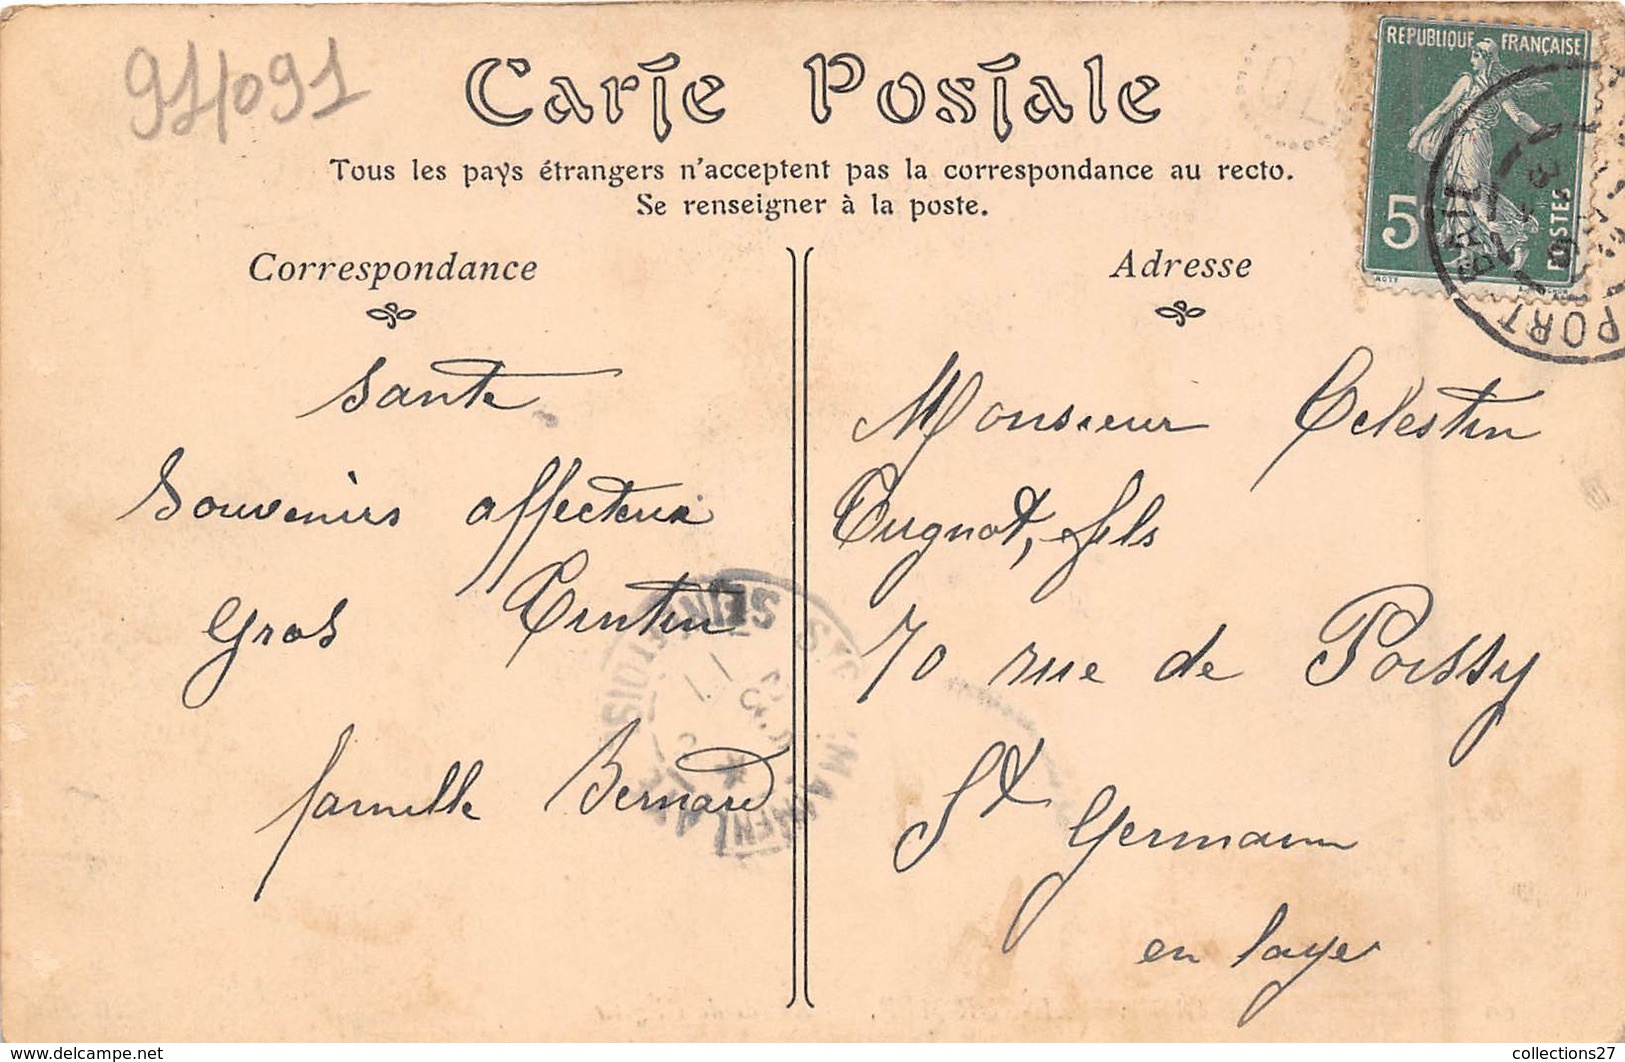 91/091
Carte Postale
Tous les pays étrangers n'acceptent pas la correspondance au recto.
Se renseigner à la poste.
REPUBLIQUE FRANÇAISE
5
POSTES
PORT BRIE
Correspondance
Santé
Souvenirs affectueux
Gros
famille Bernard
Adresse
Monsieur Celestin
Cugnot, fils
70 rue de Poissy
St Germain
en Laye
collections27
www.delcampe.net